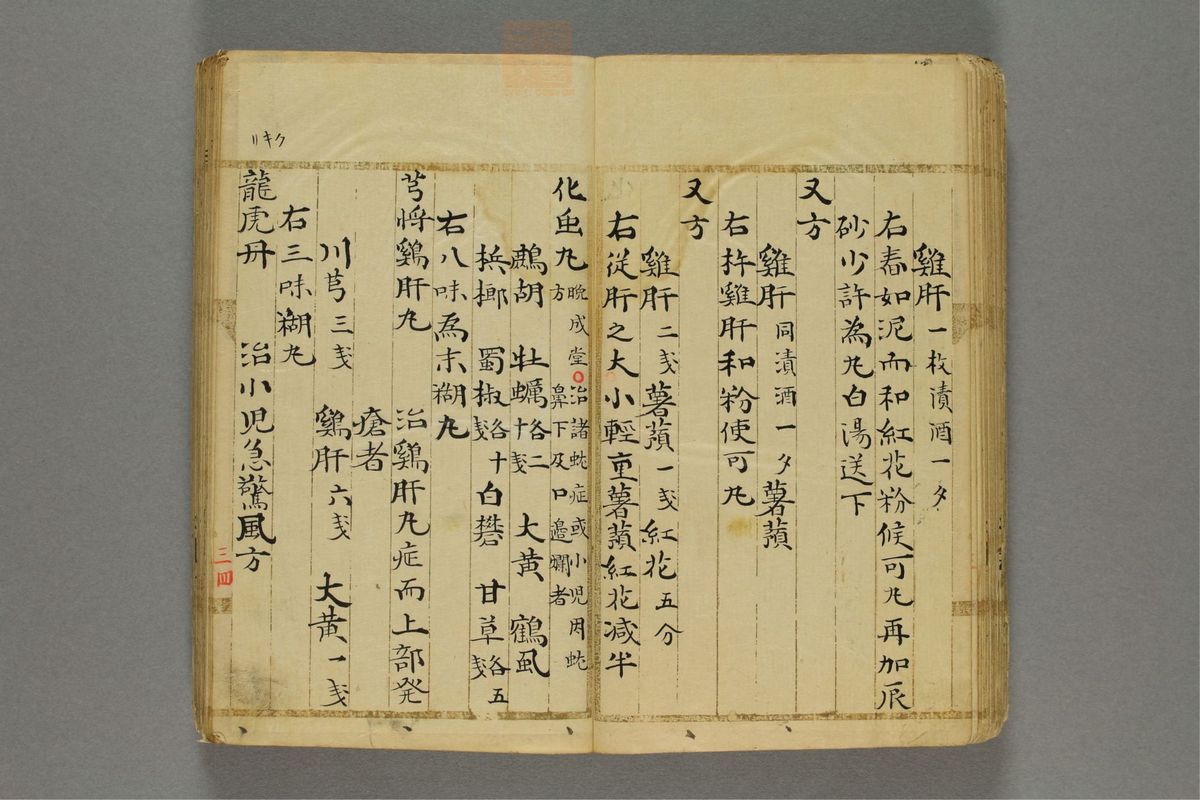 雞肝一枚漬酒一夕
右舂如泥而和紅花粉候可丸再加辰
砂少許為丸白湯送下
又方
雞肝同漬酒一夕薯蕷
右杵雞肝和粉使可丸
又方
雞肝二戔薯蕷一戔紅花五分
右従肝之大小輕重薯蕷紅花减半
化虫丸晩成堂方○治諸虵症或小児因虵鼻下及口邉爛者
鷓胡 牡蠣各二十戔 大黄 鶴虱
梹榔 蜀椒各十戔 白礬 甘草各五戔
右八味為末糊丸
芎將鷄肝丸 治鷄肝丸症而上部発
瘡者
川芎三戔 鷄肝六戔 大黄一戔
右三味糊丸
リキク
龍虎丹 治小児急驚風方
三四